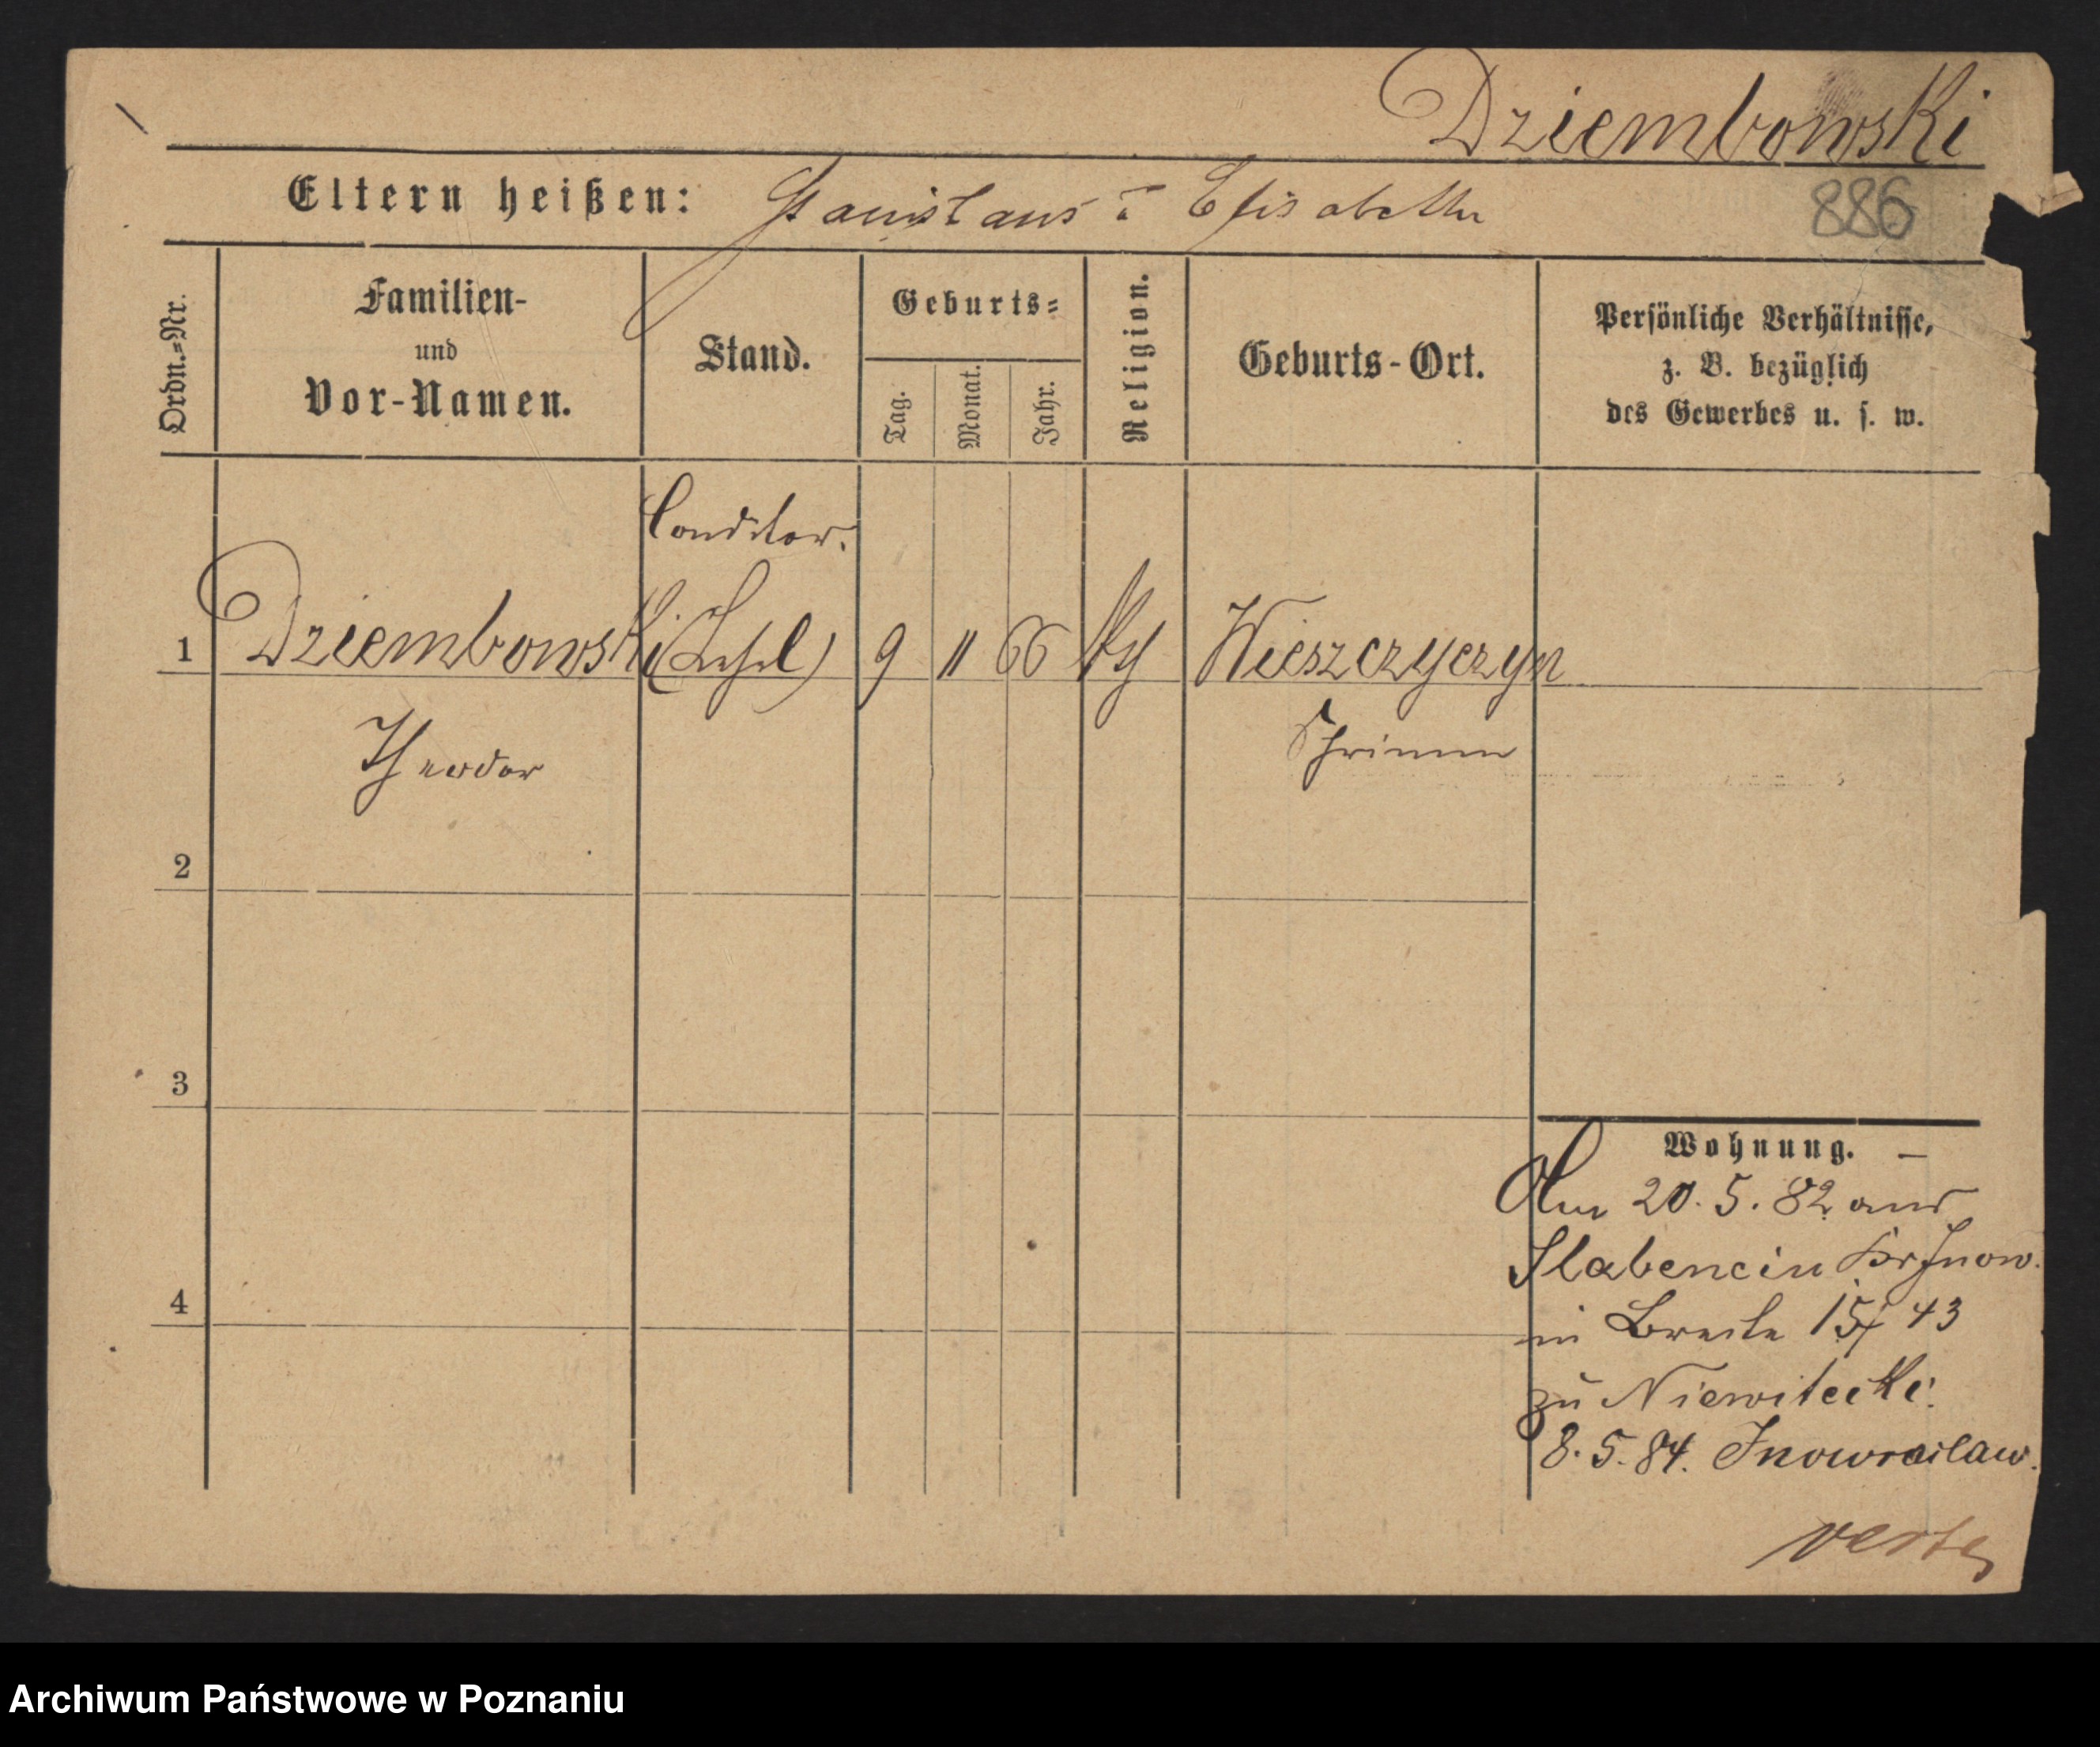 Dziembowski
Eltern heißen: Stanislaus u Elisabeth
886
Ordn.=Nr.
Familien-
und
Vor-Namen.
Stand.
Geburts=
Tag.
Monat.
Jahr.
Religion.
Geburts-Ort.
Persönliche Verhältnisse,
z. B. bezüglich
des Gewerbes u. s. w.
Conditor.
1 Dziembowski (Lehrl) 9 11 66 Wieszczyczyn
Theodor Schrimm
2
3
4
Wohnung.
Am 20. 5. 82 aus
Slabencin Kr Inow.
in Breite 15/ 43
zu Niewitecki.
8. 5. 84. Inowraclaw.
verte
Archiwum Państwowe w Poznaniu